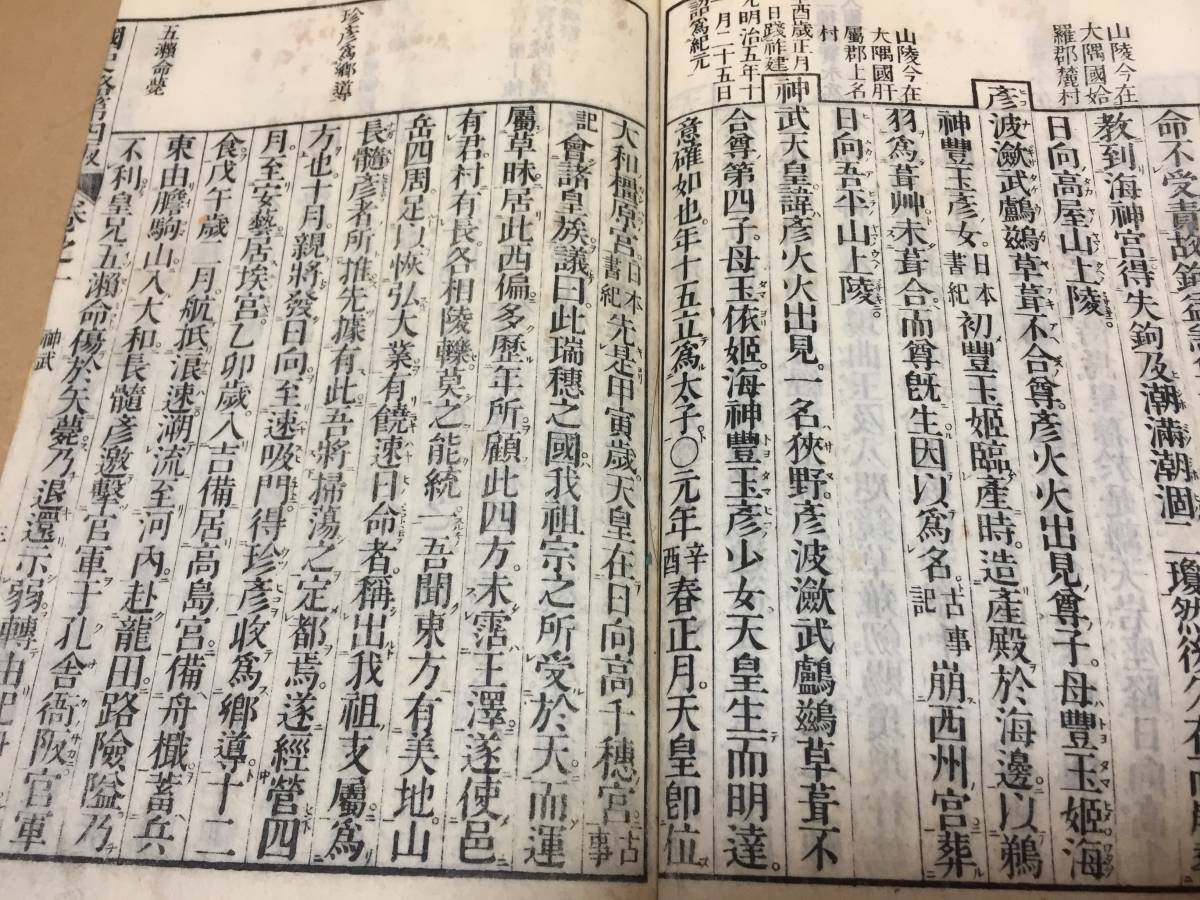 山陵今在
大隅國始
羅郡麓村
山陵今在
大隅國肝
屬郡上名
村
辛酉歲正月
日踐祚建
元明治五年十
一月二十五日
詔爲紀元
命不受責故
教到海神宮得失鉤及潮滿潮涸二瓊然後
日向高屋山上陵
彥波瀲武鸕鷀草葺不合尊彥火火出見尊子母豐玉姬海
神豐玉彥女日本書紀初豐玉姬臨產時造產殿於海邊以鵜
羽爲葺艸未葺合而尊旣生因以爲名古事記崩西州宮葬
日向吾平山上陵
神武大皇諱彥火火出見一名狹野彥波瀲武鸕鷀草葺不
合尊第四子母玉依姬海神豐玉彥少女天皇生而明達
意確如也年十五立爲太子〇元年辛酉春正月天皇卽位
珍彥爲鄉導
五瀨命薨
大和橿原宮日本書紀先是甲寅歲天皇在日向高千穗宮古事
記會諸皇族議曰此瑞穗之國我祖宗之所受於天而運
屬草昧居此西偏多歷年所顧此四方未霑王澤遂使邑
有君村有長各相陵轢莫之能統一吾聞東方有美地山
岳四周足以恢弘大業有饒速日命者稱出我祖支屬爲
長髓彥者所推先據有此吾將掃蕩之定都焉遂經營四
方也十月親將發日向至速吸門得珍彥收爲鄉導十二
月至安藝居埃宮乙卯歲入吉備居高島宮備舟檝蓄兵
食戊午歲二月航抵浪速潮流至河內赴龍田路險隘乃
東由膽駒山入大和長髓彥邀擊官軍于孔舍衙阪官軍
不利皇兄五瀨命傷於矢薨乃退還示弱轉由紀
國史略第四版 卷之一 神武 三